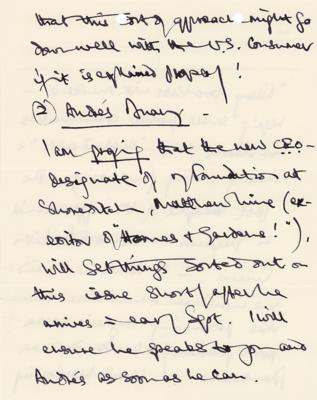 that this sort of approach might go
down well with the U.S. consumer
if it is explained properly!
② Andrés
I am praying that the new CEO-
designate of my Foundation at
Shoreditch, Matthew (ex-
editor of "Homes & Gardens!"),
will get things sorted out on
this issue shortly after he
arrives = early Sept. I will
ensure he speaks to you and
Andrés as soon as he can.